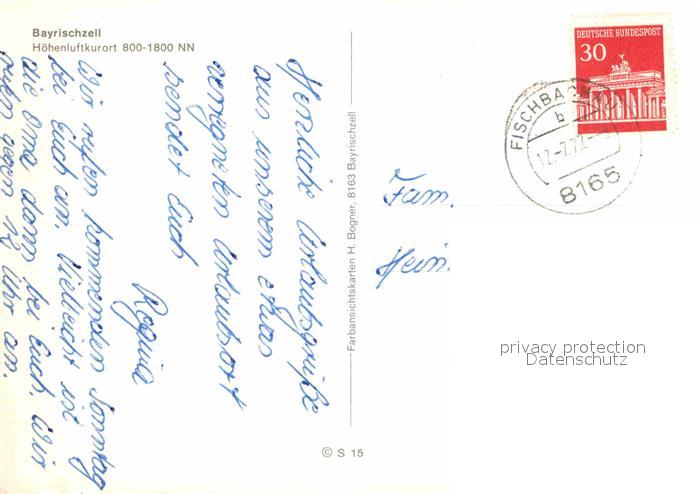 Bayrischzell
Höhenluftkurort 800-1800 NN
Herzliche Urlaubsgrüße
aus unserem etwas
verregneten Urlaubsort
sendet Euch
Regina
Wir rufen kommenden Sonntag
bei Euch an. Vielleicht ist
die Oma dann bei Euch. Wir
rufen gegen 12 Uhr an.
Farbansichtskarten H. Bogner, 8163 Bayrischzell
© S 15
DEUTSCHE BUNDESPOST
30
FISCHBACHAU
b
12.-7.72
8165
Fam.
Hein.
privacy protection
Datenschutz